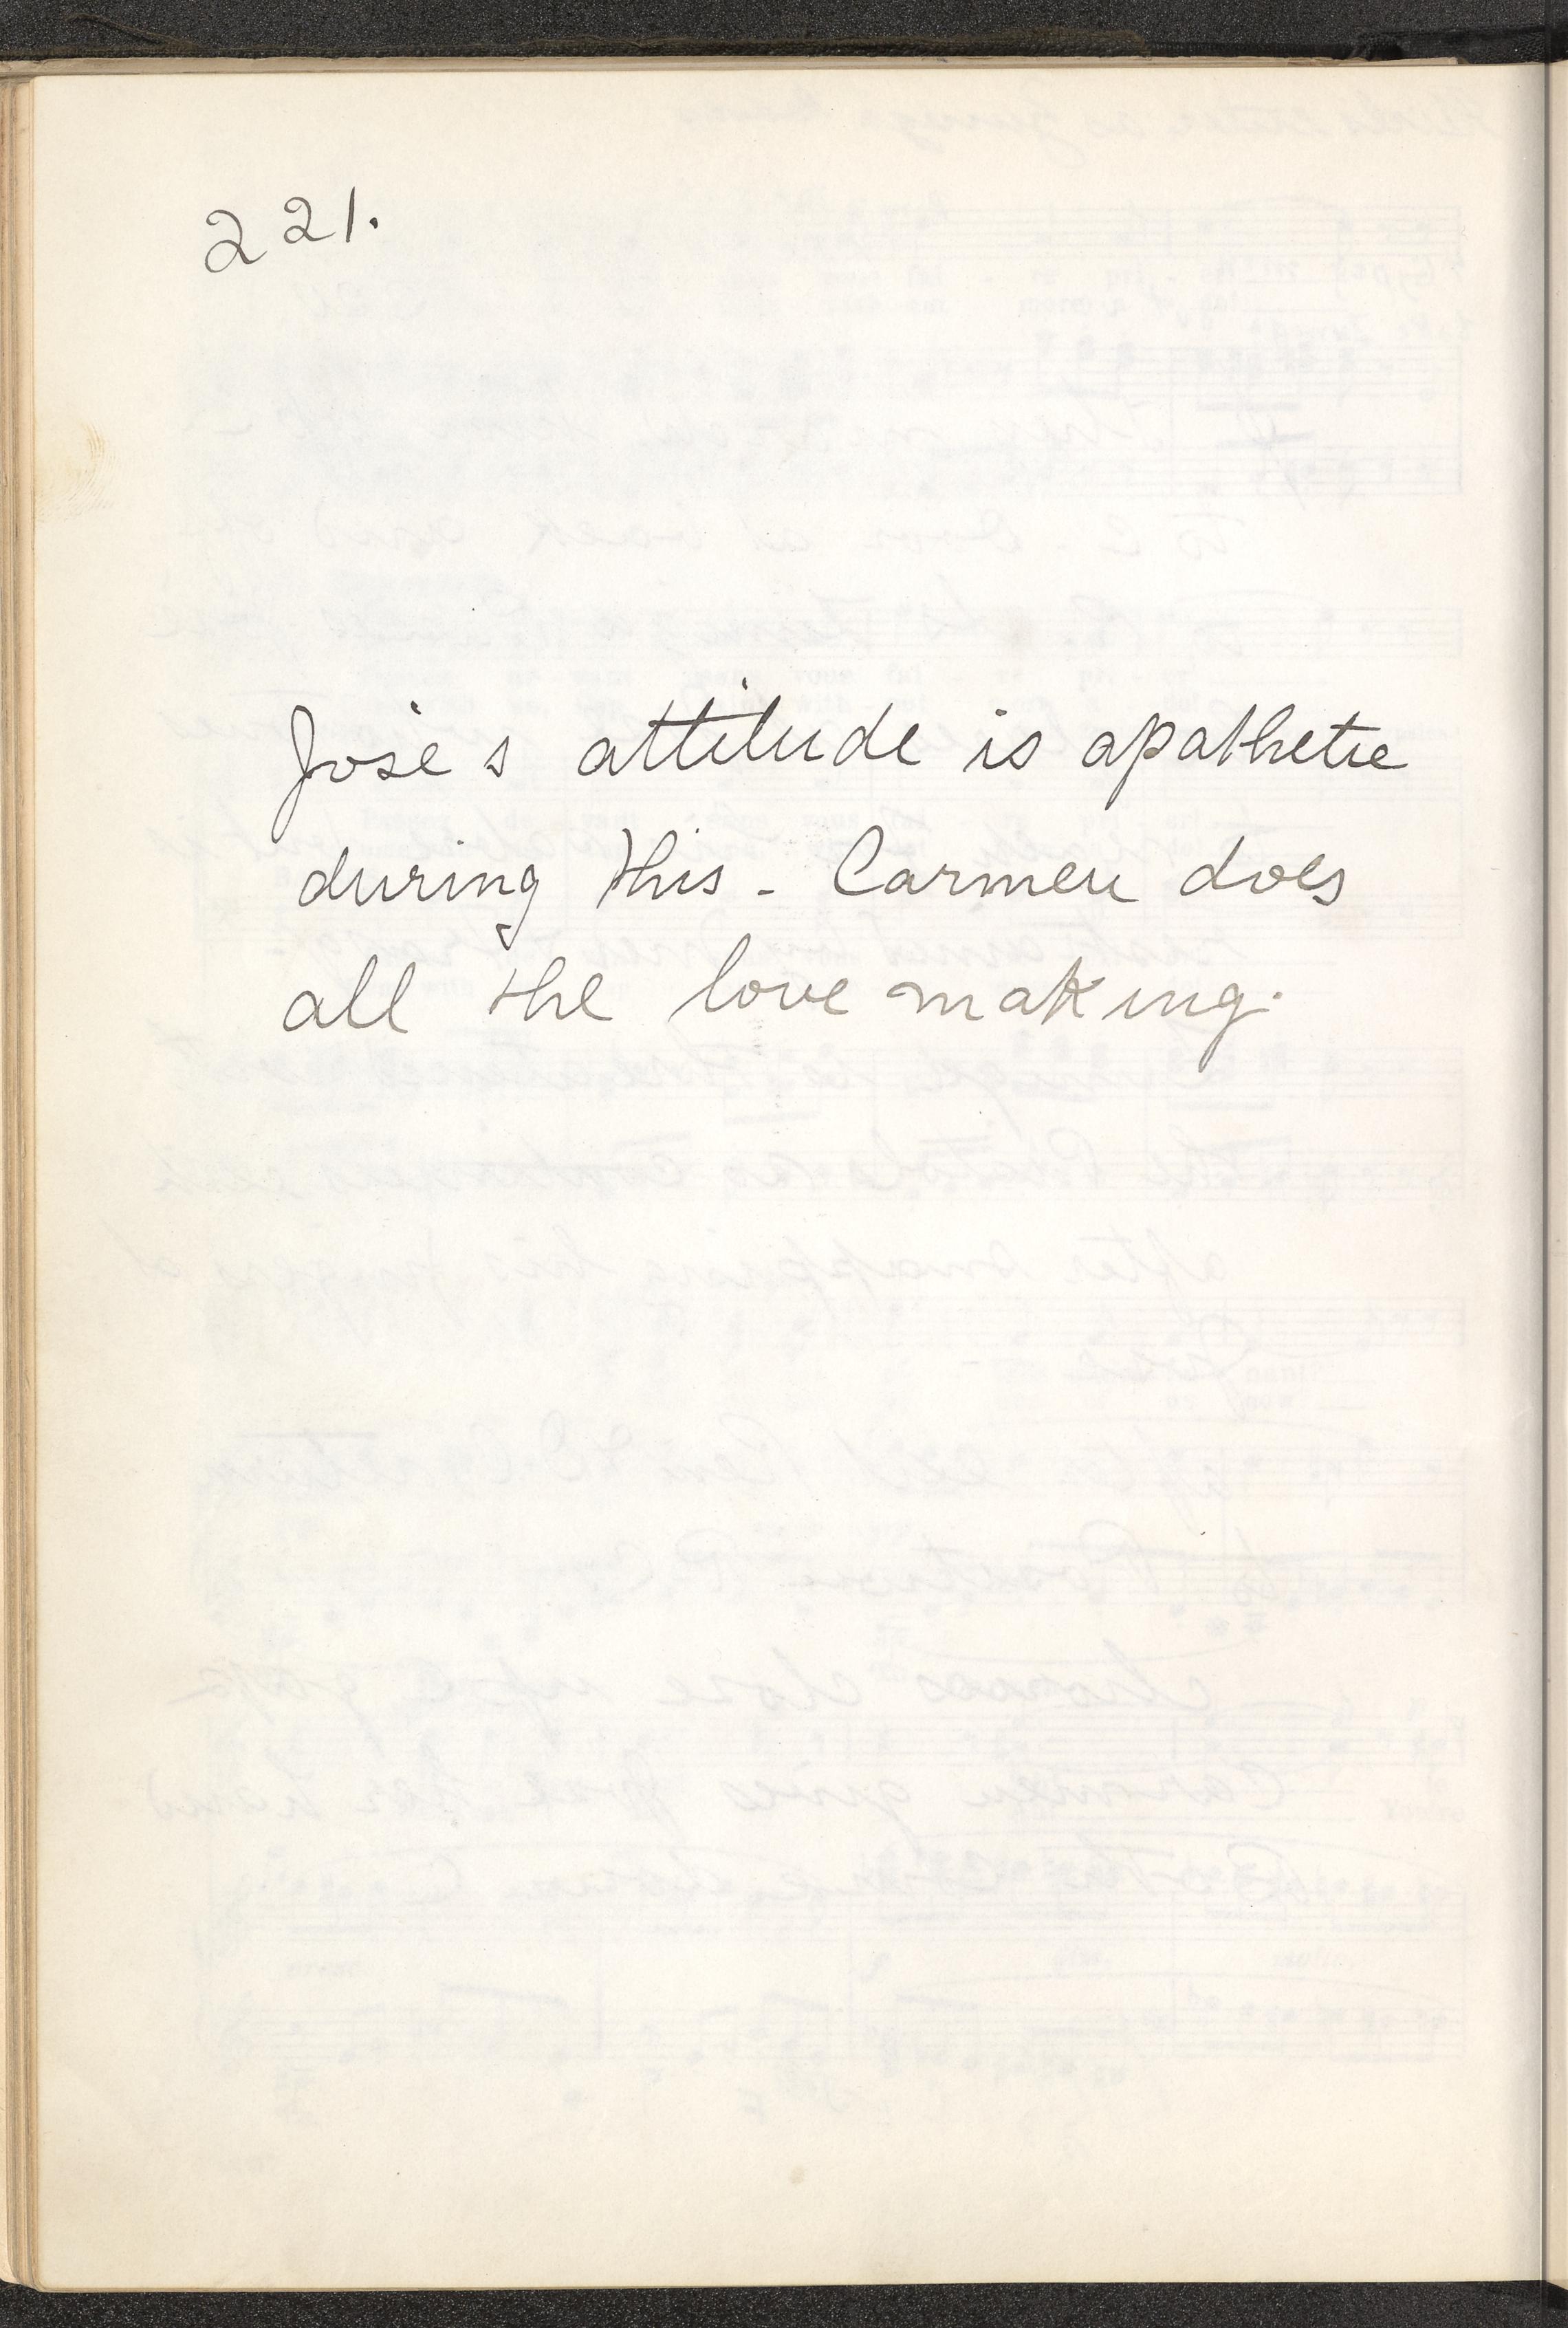 221.
José's attitude is apathetic
during this - Carmen does
all the love making.